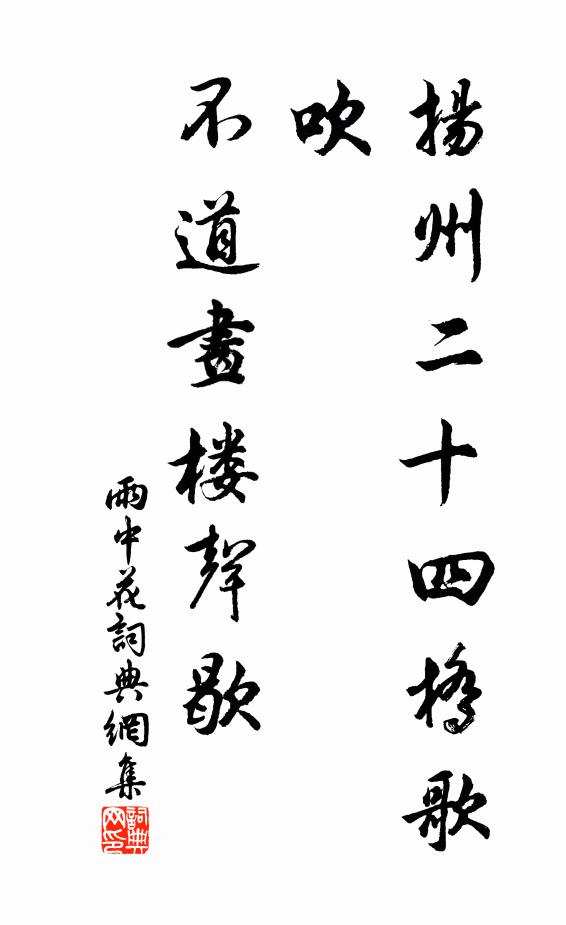 揚州二十四橋歌
吹
不道畫楼聲歇
雨中花詞典網集
詞典
网印